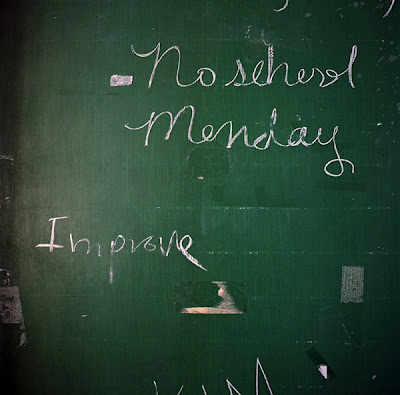 No school
Menday
Improve